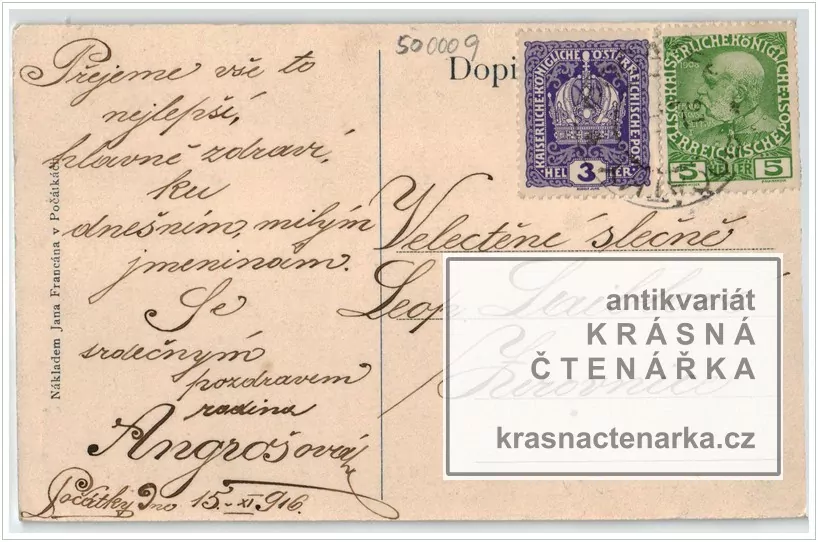 500009
Dopi
KAISERLICHE·KÖNIGLICHE ÖSTERREICHISCHE·POST
HELLER
3
5 HELLER 5
Přejeme vše to
nejlepší,
hlavně zdraví,
ku
dnešním, milým
jmeninám.
Se
srdečným
pozdravem
rodina
Angrošová
Počátky Dno 15.-XI 916.
Velectěné slečně
Leop.
Žirovnici
antikvariát
KRÁSNÁ
ČTENÁŘKA
krasnactenarka.cz
Nákladem Jana Francána v Počátkách